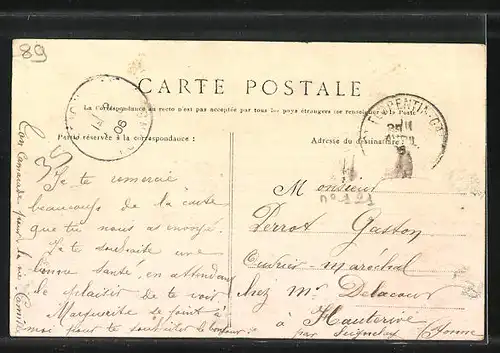 89
CARTE POSTALE
La Correspondance au recto n'est pas acceptée par tous les pays étrangers (se renseigner à la Poste)
Partie réservée à la correspondance :
Adresse du destinataire :
06
Je te remercie
beaucoup de la carte
que tu nous as envoyé.
Je te souhaite une
bonne santé, en attendant
le plaisir de te voir
Marguerite se joint à
moi pour te souhaiter le bonjour
Ton camarade pour la vie Camille
Monsieur
Perrot Gaston
Ouvrier-marechal
chez Mr Delacour
à Hauterive
par Seignelay (Yonne